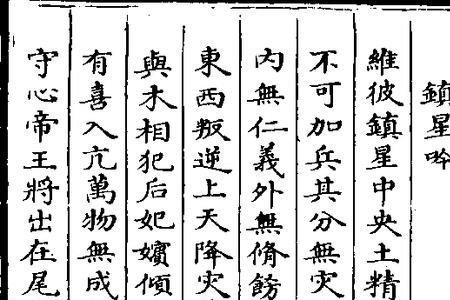 鎮星吟
維彼鎮星中央土精
不可加兵其分無灾
內無仁義外無脩餝
東西叛逆上天降灾
與木相犯后妃嬪傾
有喜入亢萬物無成
守心帝王將出在尾